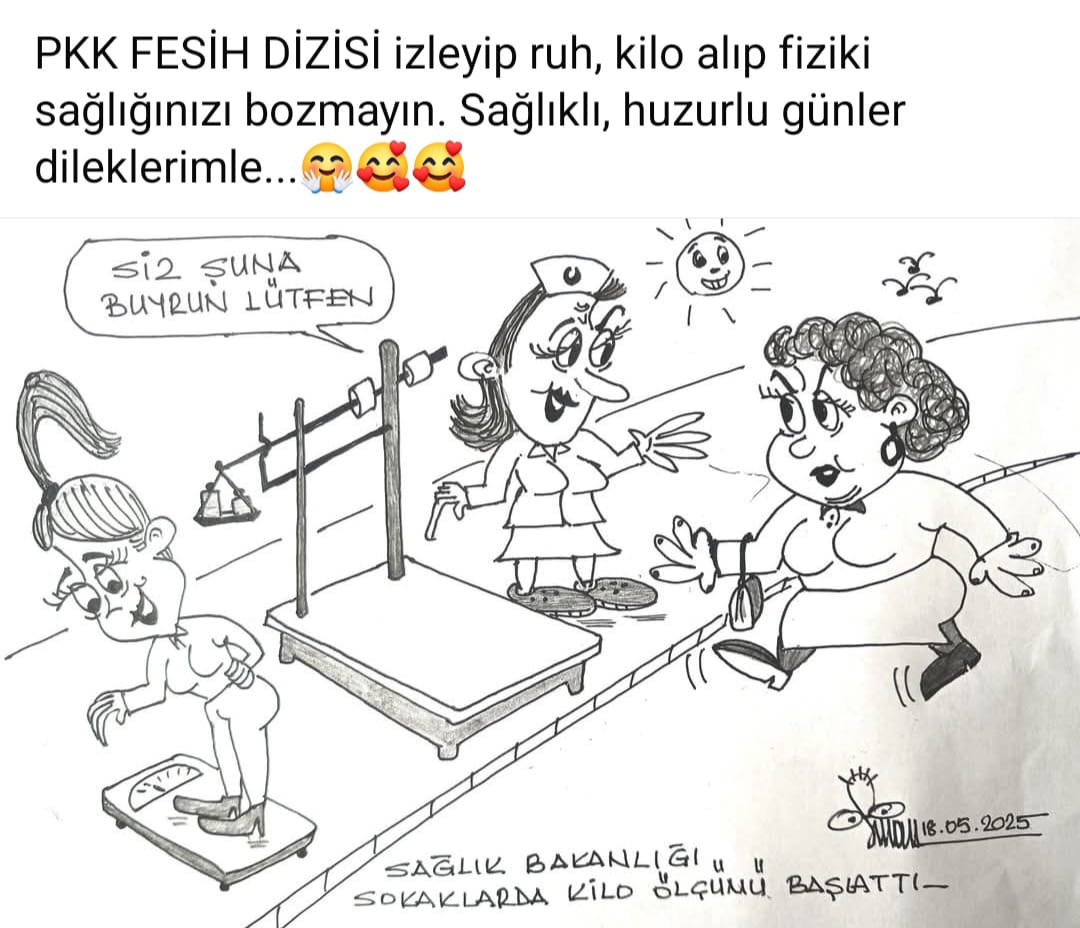 PKK FESİH DİZİSİ izleyip ruh, kilo alıp fiziki
sağlığınızı bozmayın. Sağlıklı, huzurlu günler
dileklerimle...🤗🥰🥰
SİZ ŞUNA
BUYRUN LÜTFEN
18.05.2025
SAĞLIK BAKANLIĞI
SOKAKLARDA KİLO ÖLÇÜMÜ BAŞLATTI—